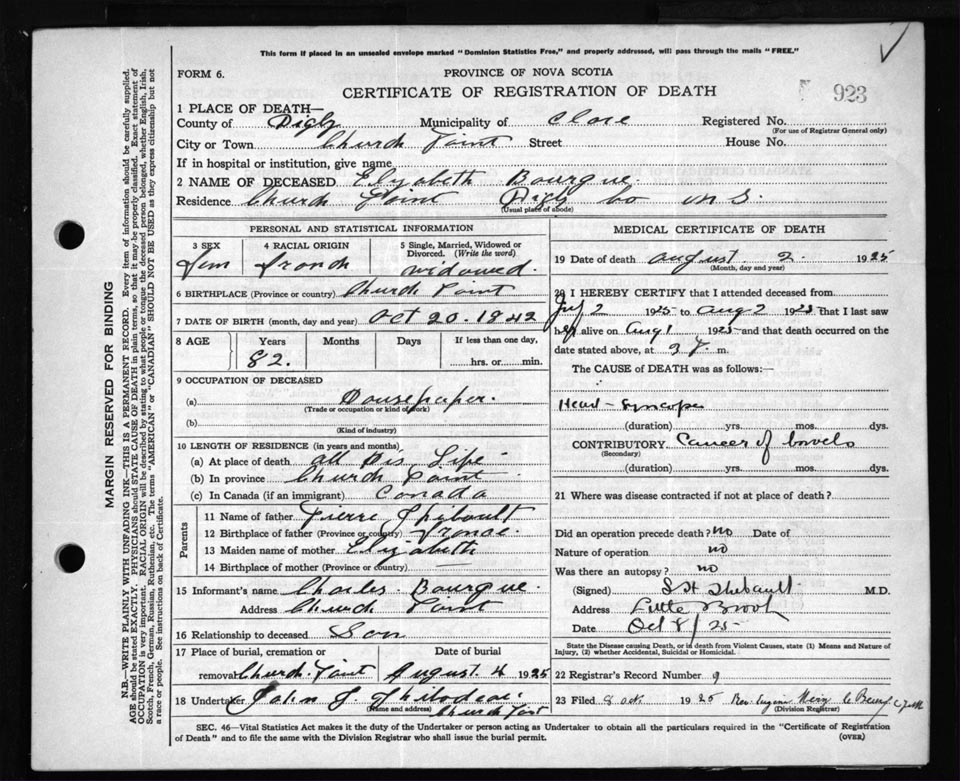 This form if placed in an unsealed envelope marked "Dominion Statistics Free," and properly addressed, will pass through the mails "FREE."
FORM 6.
PROVINCE OF NOVA SCOTIA
CERTIFICATE OF REGISTRATION OF DEATH
923
1 PLACE OF DEATH—
County of Digby Municipality of Clare Registered No.
(For use of Registrar General only)
City or Town Church Point Street House No.
If in hospital or institution, give name
2 NAME OF DECEASED Elyzabeth Bourque
Residence Church Point Digby co N S.
(Usual place of abode)
PERSONAL AND STATISTICAL INFORMATION
3 SEX 4 RACIAL ORIGIN 5 Single, Married, Widowed or Divorced. (Write the word)
Fem French widowed.
6 BIRTHPLACE (Province or country) Church Point
7 DATE OF BIRTH (month, day and year) Oct 20. 1842
8 AGE Years Months Days If less than one day,
82. hrs. or min.
9 OCCUPATION OF DECEASED
(a) Housekeeper.
(Trade or occupation or kind of work)
(b)
(Kind of industry)
10 LENGTH OF RESIDENCE (in years and months)
(a) At place of death all His Life
(b) In province Church Point
(c) In Canada (if an immigrant) Canada
Parents
11 Name of father Pierre Thibault
12 Birthplace of father (Province or country)
13 Maiden name of mother Elizabeth
14 Birthplace of mother (Province or country)
15 Informant's name Charles Bourque.
Address Church Point
16 Relationship to deceased Son
17 Place of burial, cremation or removal Date of burial
Church Point August 4 1925
18 Undertaker John J Thibodeau
(Name and address) Church Point
MEDICAL CERTIFICATE OF DEATH
19 Date of death august 2. 1925
(Month, day and year)
20 I HEREBY CERTIFY that I attended deceased from
2 1925 to Aug 2 1925 that I last saw
her alive on Aug 1 1925 and that death occurred on
date stated above, at m.
The CAUSE of DEATH was as follows:—
Heart - Syncope
(duration) yrs. mos. dys.
CONTRIBUTORY Cancer of bowels
(Secondary)
(duration) yrs. mos. dys.
21 Where was disease contracted if not at place of death?
Did an operation precede death? no Date of
Nature of operation no
Was there an autopsy? no
(Signed) Thebault M.D.
Address Little Brook
Date Oct 8/25
State the Disease causing Death, or in death from Violent Causes, state (1) Means and Nature of Injury, (2) whether Accidental, Suicidal or Homicidal.
22 Registrar's Record Number 9
23 Filed 8 oct 1925 Rev. Eugene
(Division Registrar)
SEC. 46—Vital Statistics Act makes it the duty of the Undertaker or person acting as Undertaker to obtain all the particulars required in the "Certificate of Registration
of Death" and to file the same with the Division Registrar who shall issue the burial permit.
(OVER)
MARGIN RESERVED FOR BINDING
N.B.—WRITE PLAINLY WITH UNFADING INK—THIS IS A PERMANENT RECORD. Every item of information should be carefully supplied.
AGE should be stated EXACTLY. PHYSICIANS should STATE CAUSE OF DEATH in plain terms, so that it may be properly classified. Exact statement of
OCCUPATION is very important. RACIAL ORIGIN will be described by stating to what people or tongue the deceased person belonged, whether English, Irish,
Scotch, French, German, Russian, Ruthenian, etc. The terms "AMERICAN" or "CANADIAN" SHOULD NOT BE USED as they express citizenship but not
a race or people. See instructions on back of Certificate.